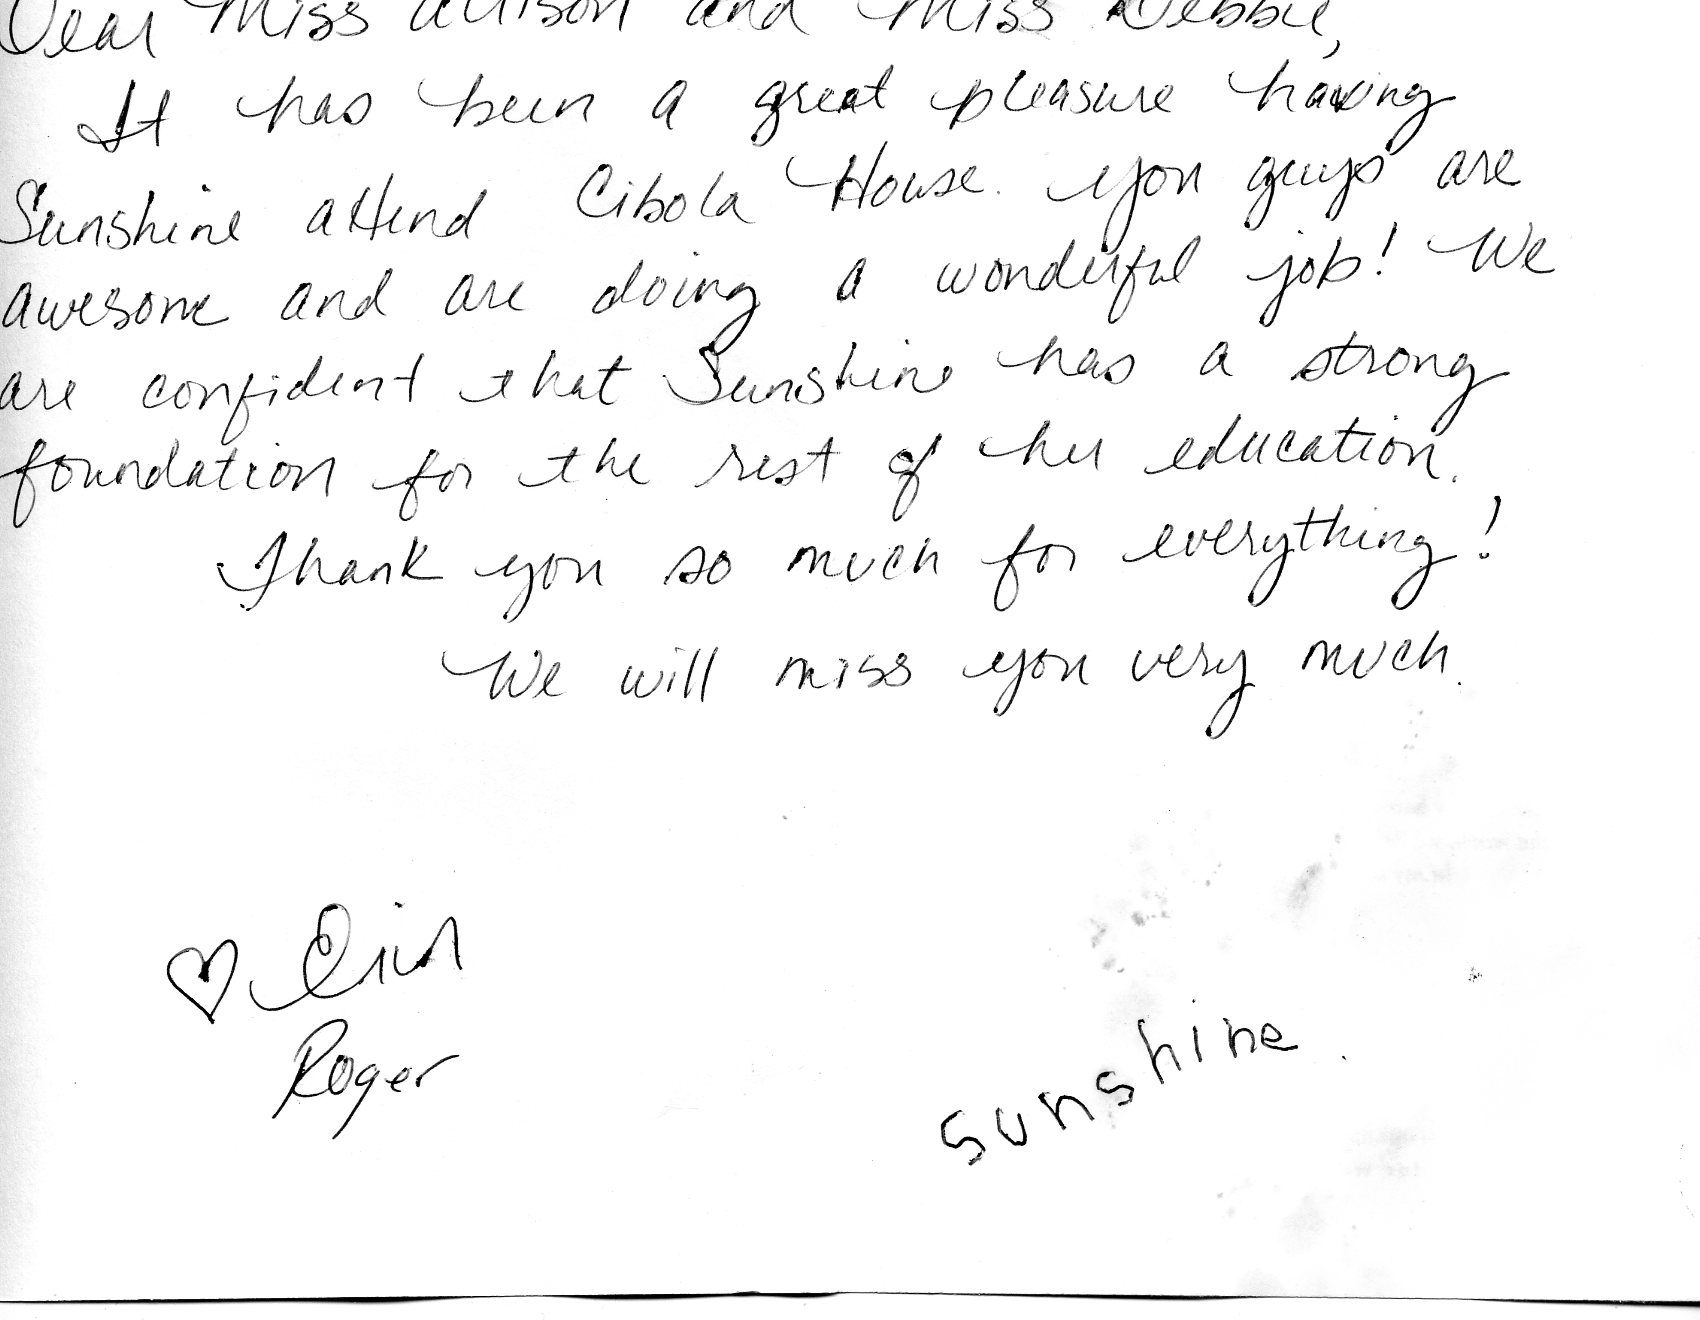 Dear Miss Allison and Miss Debbie,
It has been a great pleasure having
Sunshine attend Cibola House. You guys are
awesome and are doing a wonderful job! We
are confident that Sunshine has a strong
foundation for the rest of her education.
Thank you so much for everything!
We will miss you very much.
♡ Erin
Roger
sunshine